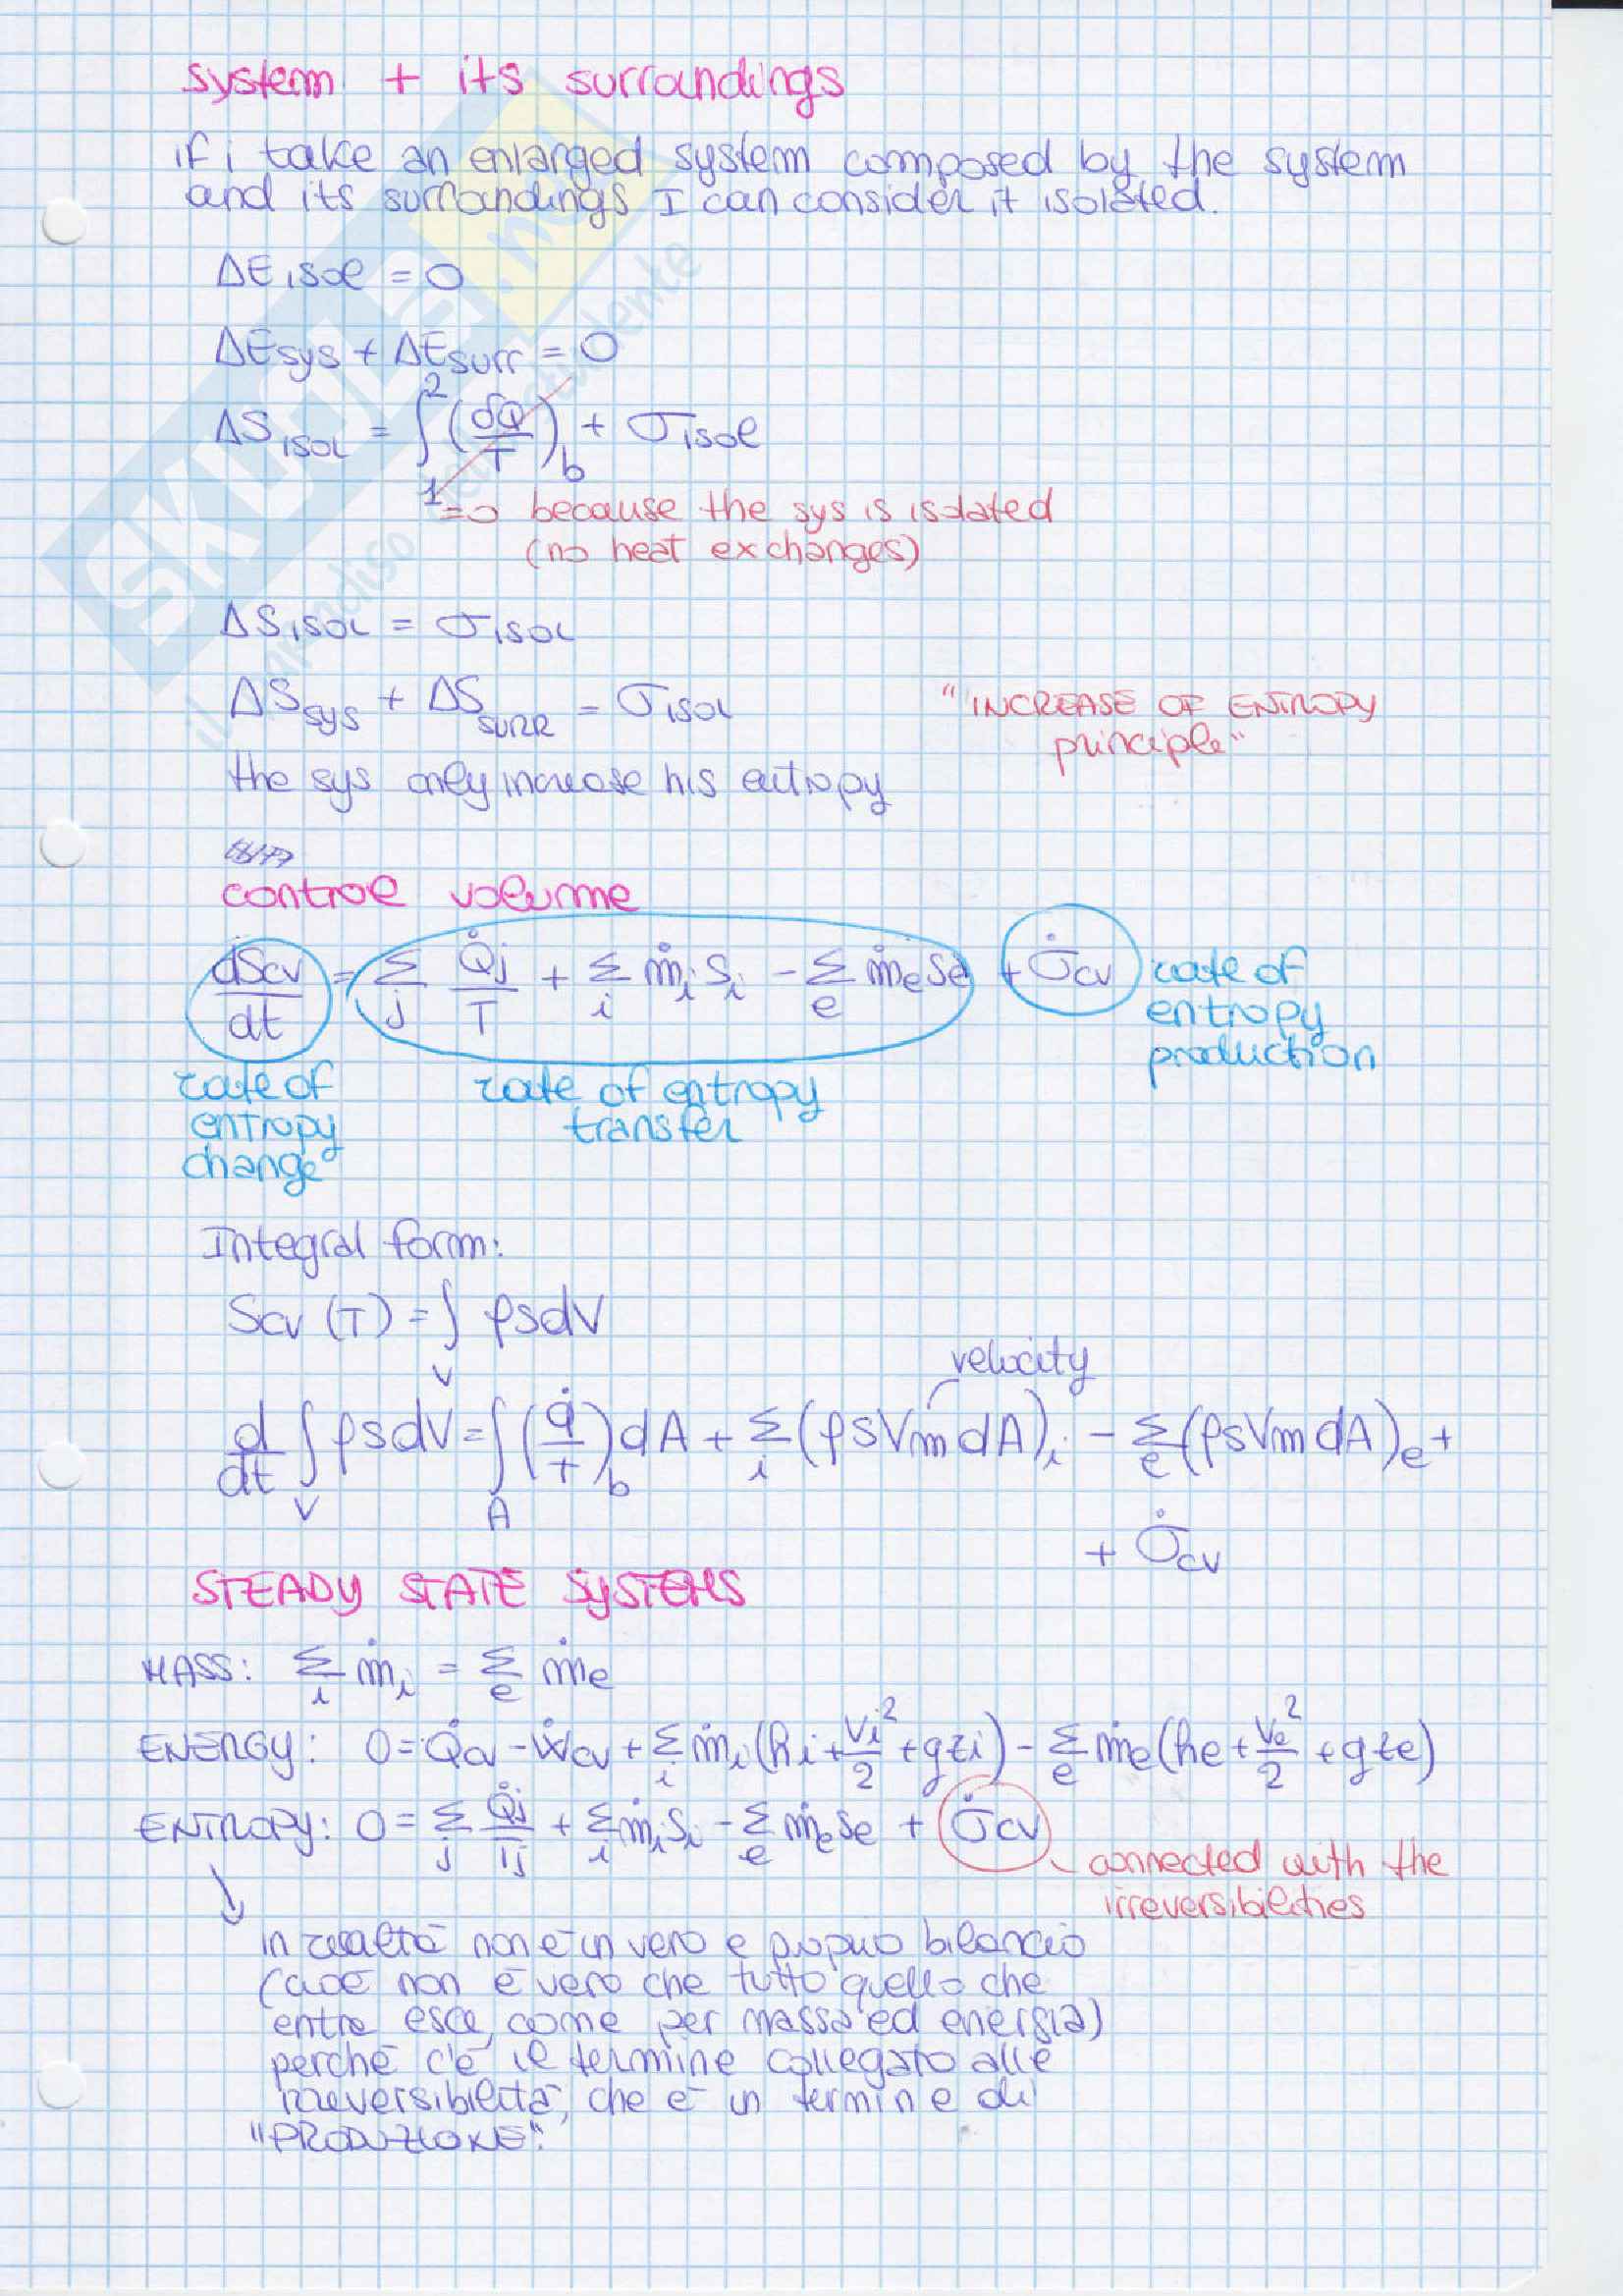 system + its surroundings
if i take an enlarged system composed by the system
and its surroundings I can consider it isolated.
ΔE isol = 0
ΔEsys + ΔEsurr = 0
ΔS isol = ∫₁² (δQ/T)b + σisol
=0 because the sys is isolated
(no heat exchanges)
ΔS isol = σisol
ΔSsys + ΔSsurr = σisol
"INCREASE OF ENTROPY
principle"
the sys only increase his entropy
control volume
dScv/dt = Σj Q̇j/T + Σi ṁi si - Σe ṁe se + σ̇cv
rate of
entropy
production
rate of
entropy
change
rate of entropy
transfer
Integral form:
Scv (T) = ∫V ρsdV
velocity
d/dt ∫V ρsdV = ∫A (q̇/T)b dA + Σi (ρsVm dA)i - Σe (ρsVm dA)e +
+ σ̇cv
STEADY STATE SYSTEMS
MASS: Σi ṁi = Σe ṁe
ENERGY: 0 = Q̇cv - Ẇcv + Σi ṁi (hi + Vi²/2 + gzi) - Σe ṁe (he + Ve²/2 + gze)
ENTROPY: 0 = Σj Q̇j/Tj + Σi ṁi si - Σe ṁe se + σ̇cv
connected with the
irreversibilities
In realtà non è un vero e proprio bilancio
(cioè non è vero che tutto quello che
entra esce, come per massa ed energia)
perché c'è il termine collegato alle
irreversibilità, che è un termine di
"PRODUZIONE".
SKUOLA.net
il paradiso dello studente